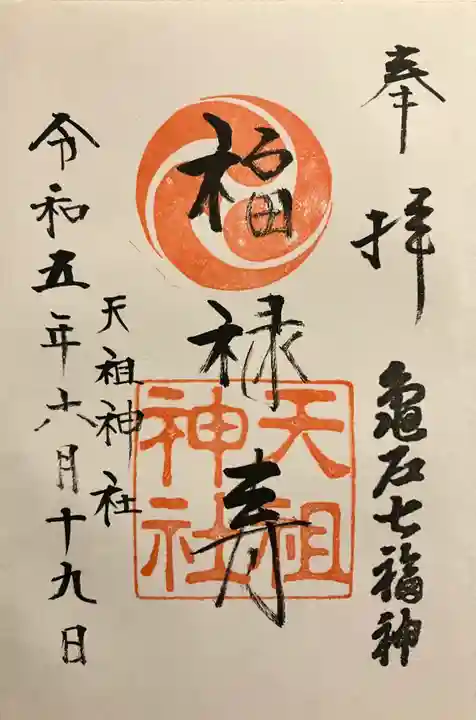 奉拝
亀石七福神
福禄寿
天祖神社
天祖神社
令和五年六月十九日